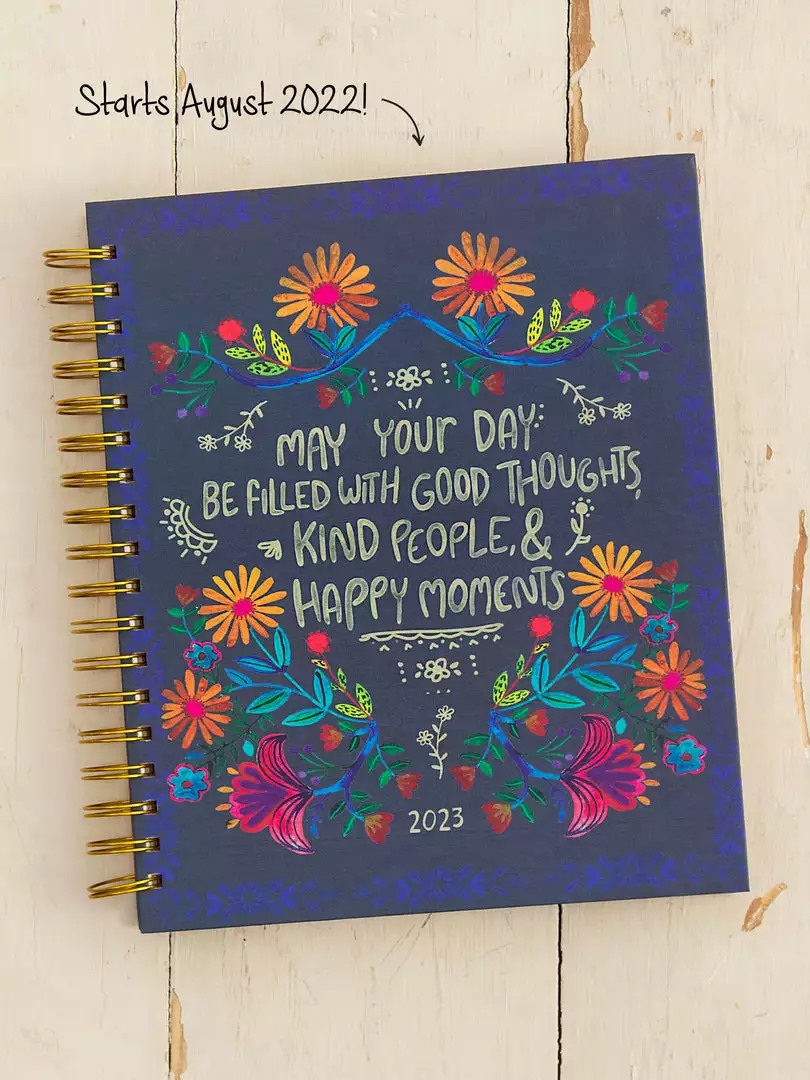 Starts August 2022!
MAY YOUR DAY
BE FILLED WITH GOOD THOUGHTS,
KIND PEOPLE, &
HAPPY MOMENTS
2023